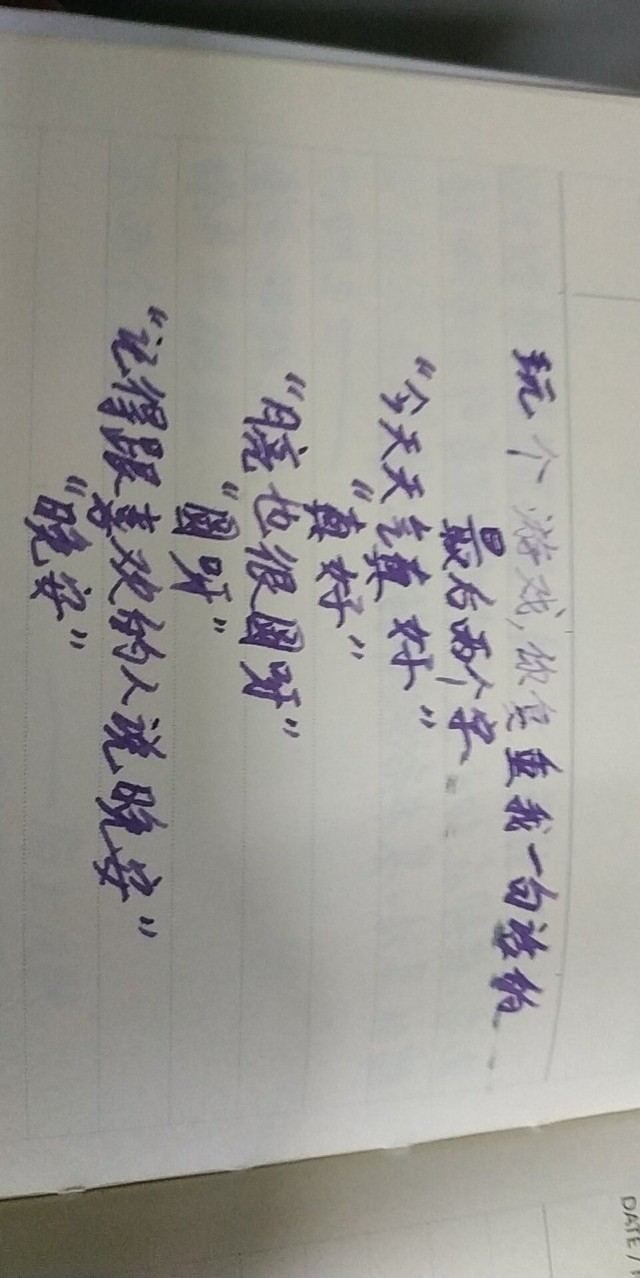 玩个游戏,你复重我一句话的
最后两个字
“今天天气真好”
“真好”
“月亮也很圆呀”
“圆呀”
“记得跟喜欢的人说晚安”
“晚安”
DATE /